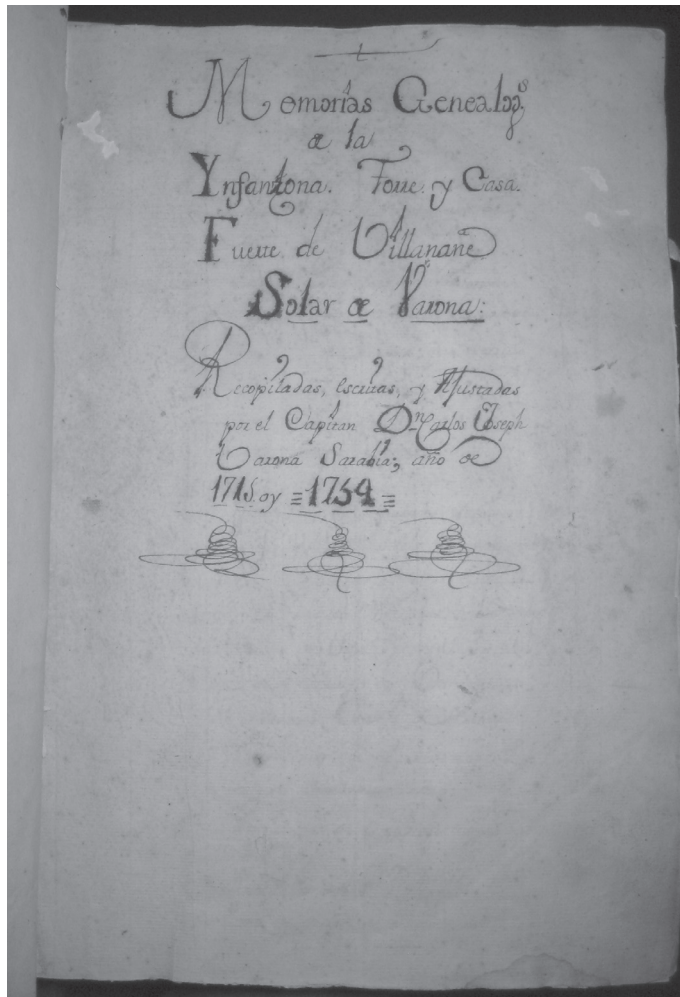 Memorias Genealogs.
de la
Ynfantona. Torre. y Casa.
Fuerte de Villanañe
Solar de Varona:
Recopiladas, escritas, y Ajustadas
por el Capitan Dn. Carlos Joseph
Varona Sarabia; año de
1715. oy = 1754 =